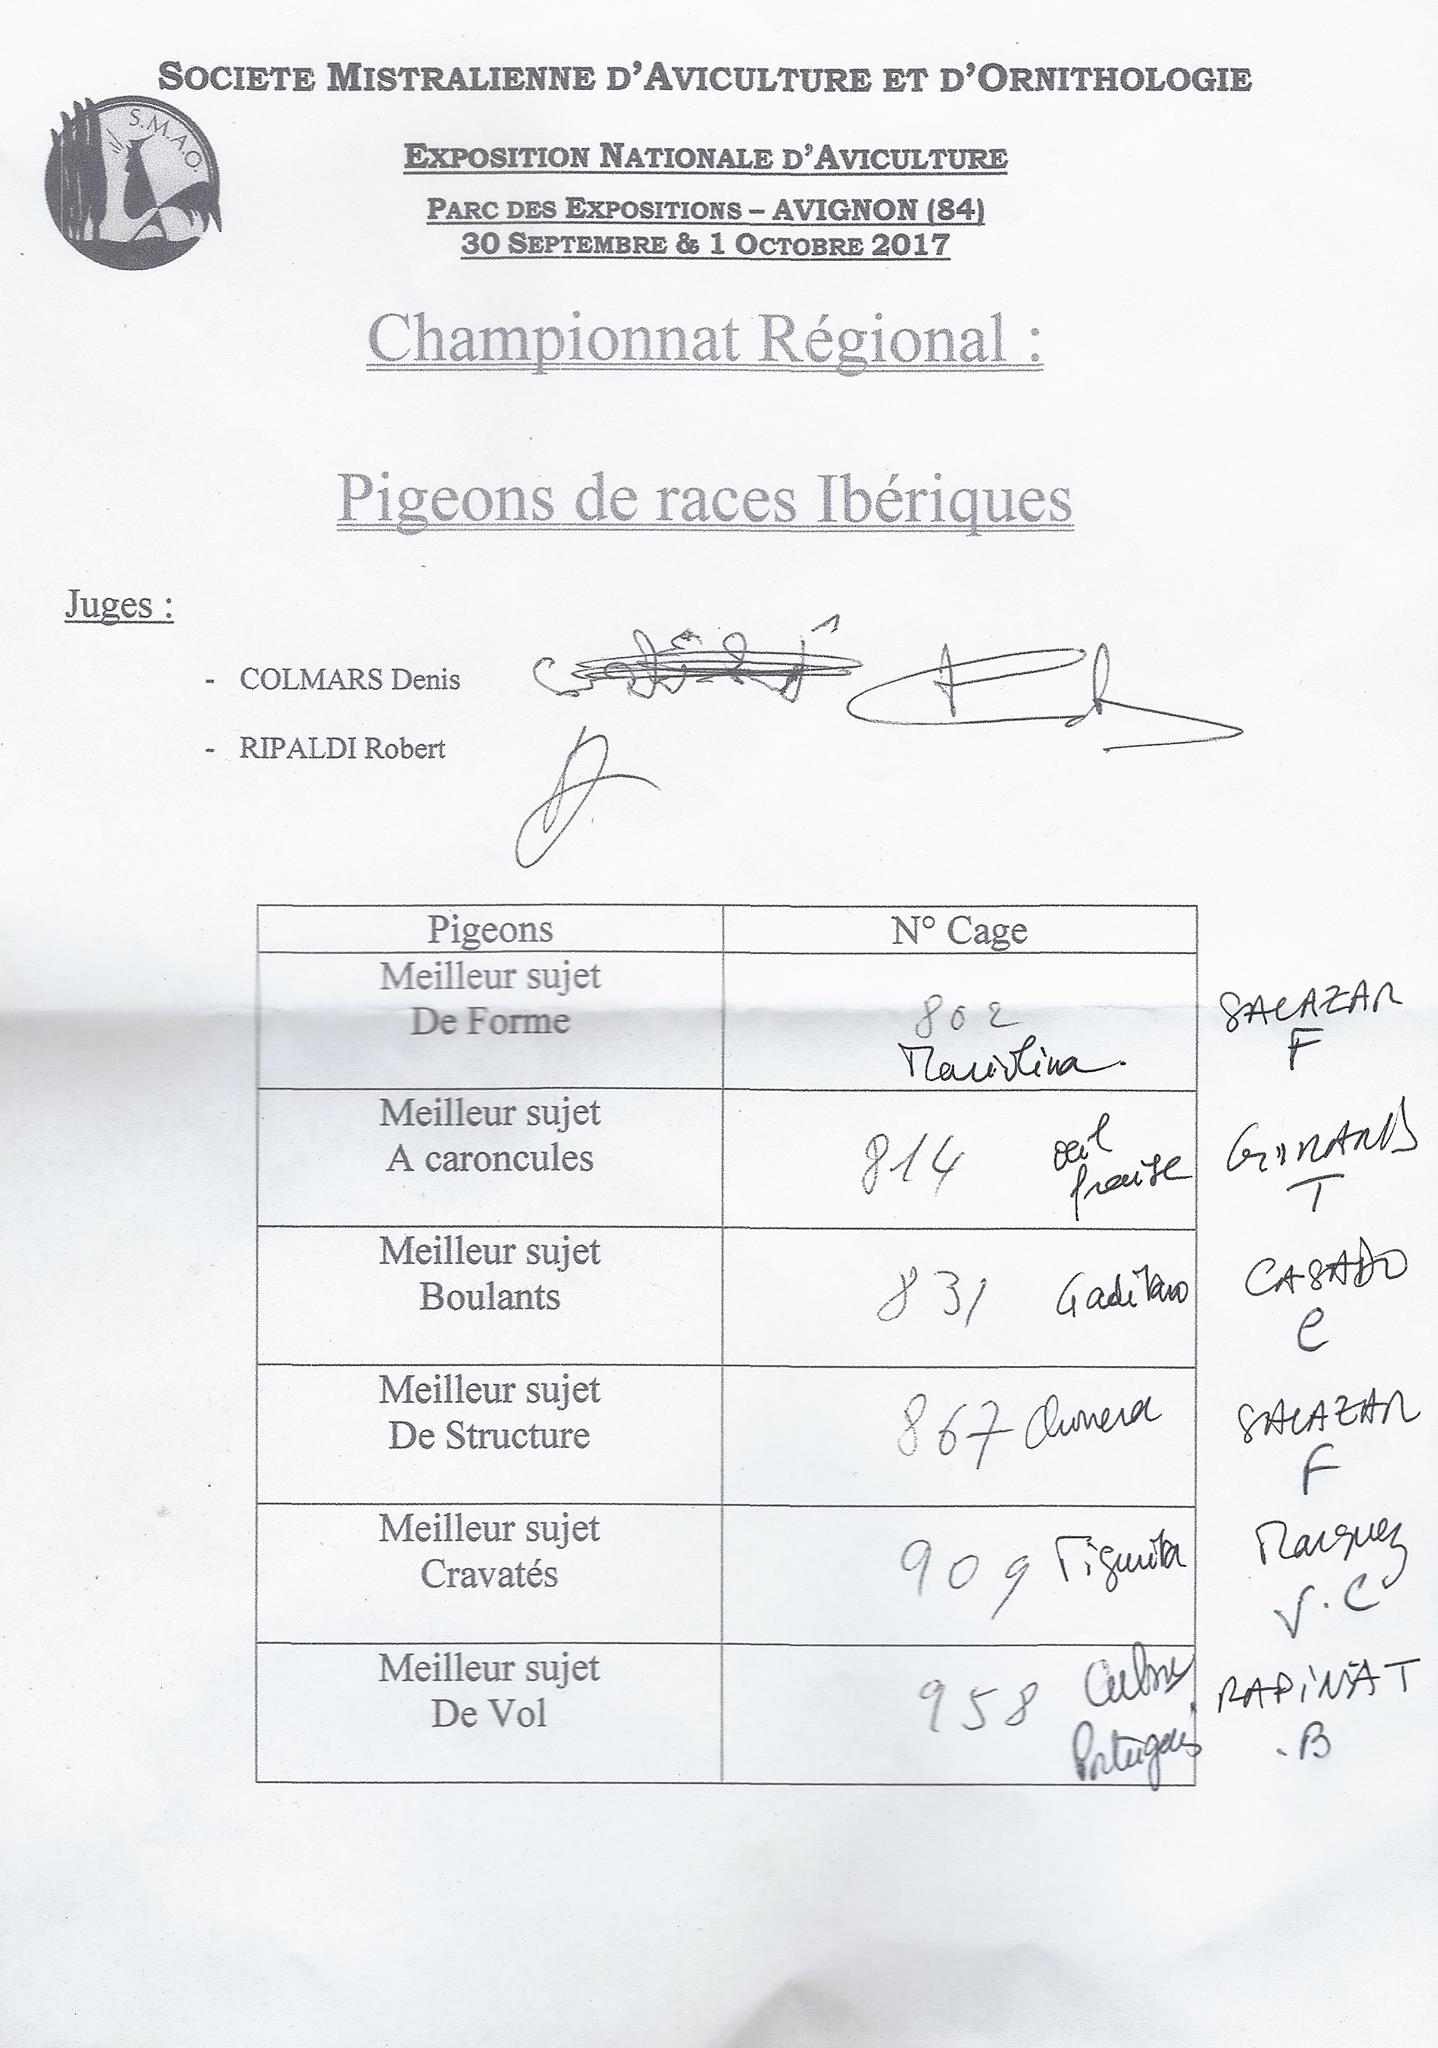 SOCIETE MISTRALIENNE D'AVICULTURE ET D'ORNITHOLOGIE
S.M.A.O.
EXPOSITION NATIONALE D'AVICULTURE
PARC DES EXPOSITIONS – AVIGNON (84)
30 SEPTEMBRE & 1 OCTOBRE 2017
Championnat Régional :
Pigeons de races Ibériques
Juges :
- COLMARS Denis
- RIPALDI Robert
Pigeons N° Cage
Meilleur sujet
De Forme
802
SALAZAR
F
Meilleur sujet
A caroncules
814 œil
fraise
T
Meilleur sujet
Boulants
831 Gaditano
CASADO
C
Meilleur sujet
De Structure
867
SALAZAR
F
Meilleur sujet
Cravatés
909
Marquez
V.C
Meilleur sujet
De Vol
958
Portugais
RAPINAT
.B